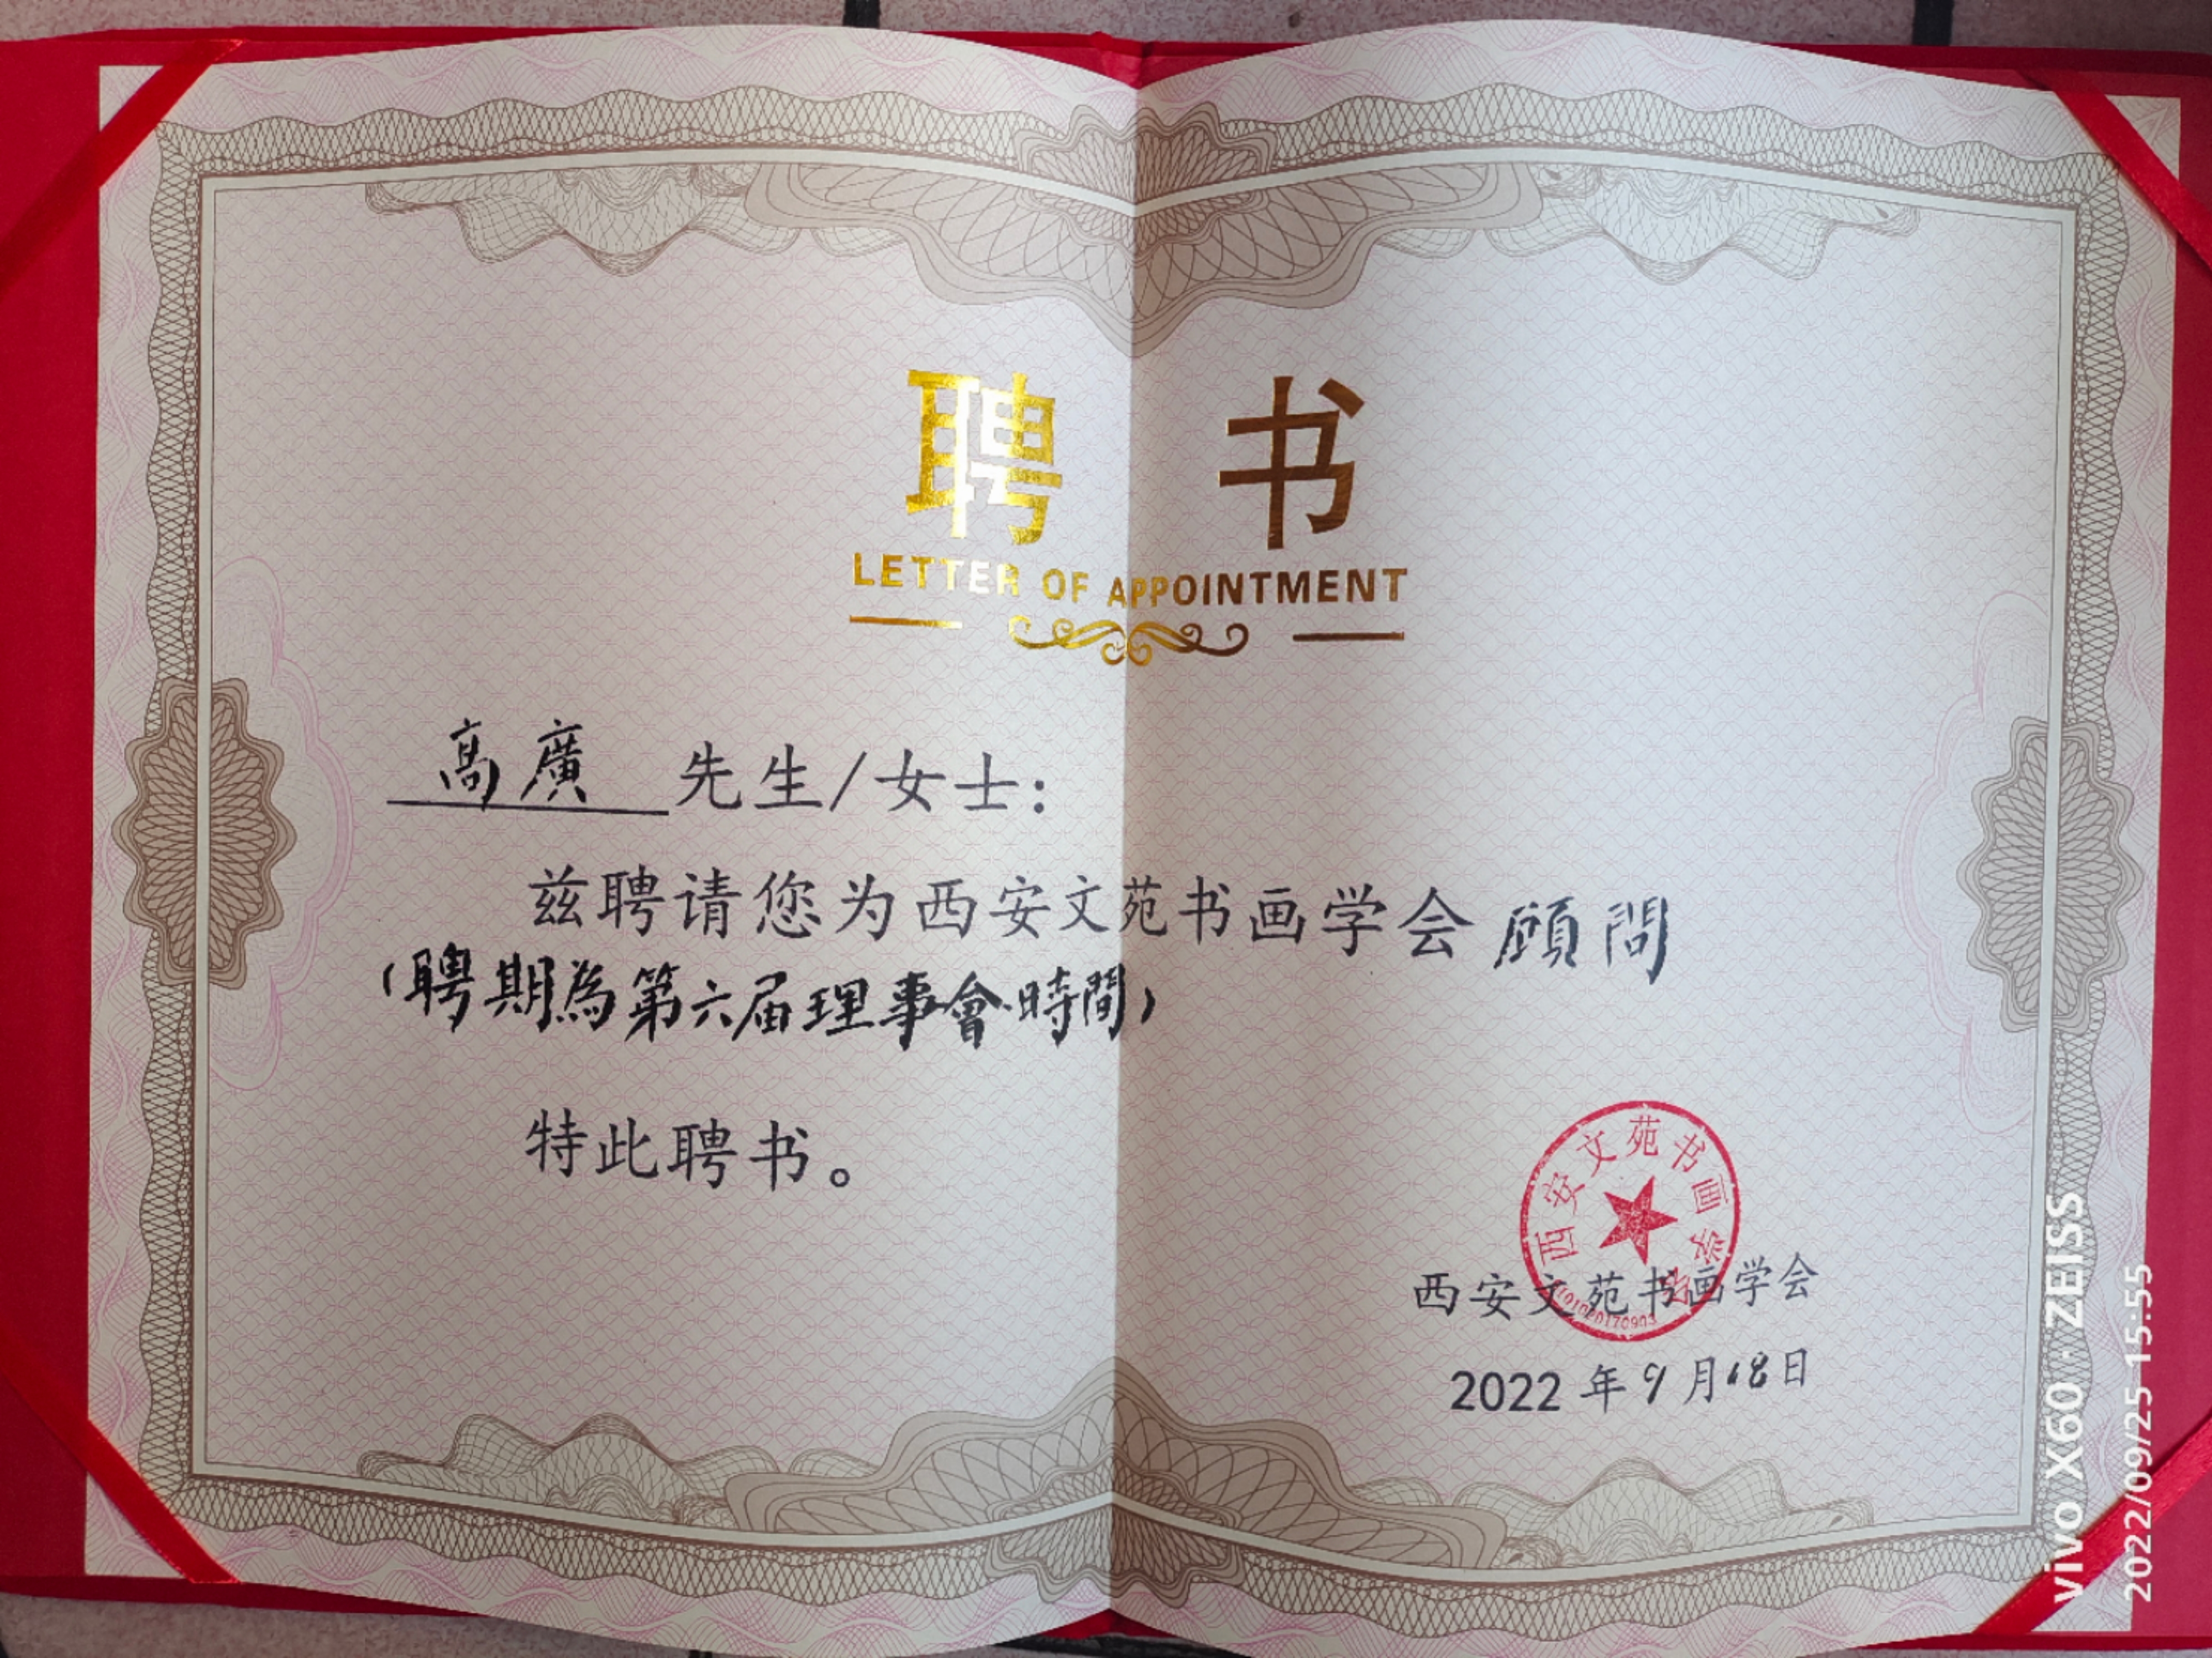 聘 书
LETTER OF APPOINTMENT
高廣 先生/女士：
兹聘请您为西安文苑书画学会顧問
（聘期為第六届理事會時間）
特此聘书。
西安文苑书画学会
西安文苑书画学会
2022 年 9 月 18 日
vivo X60 · ZEISS
2022/09/25 15:55